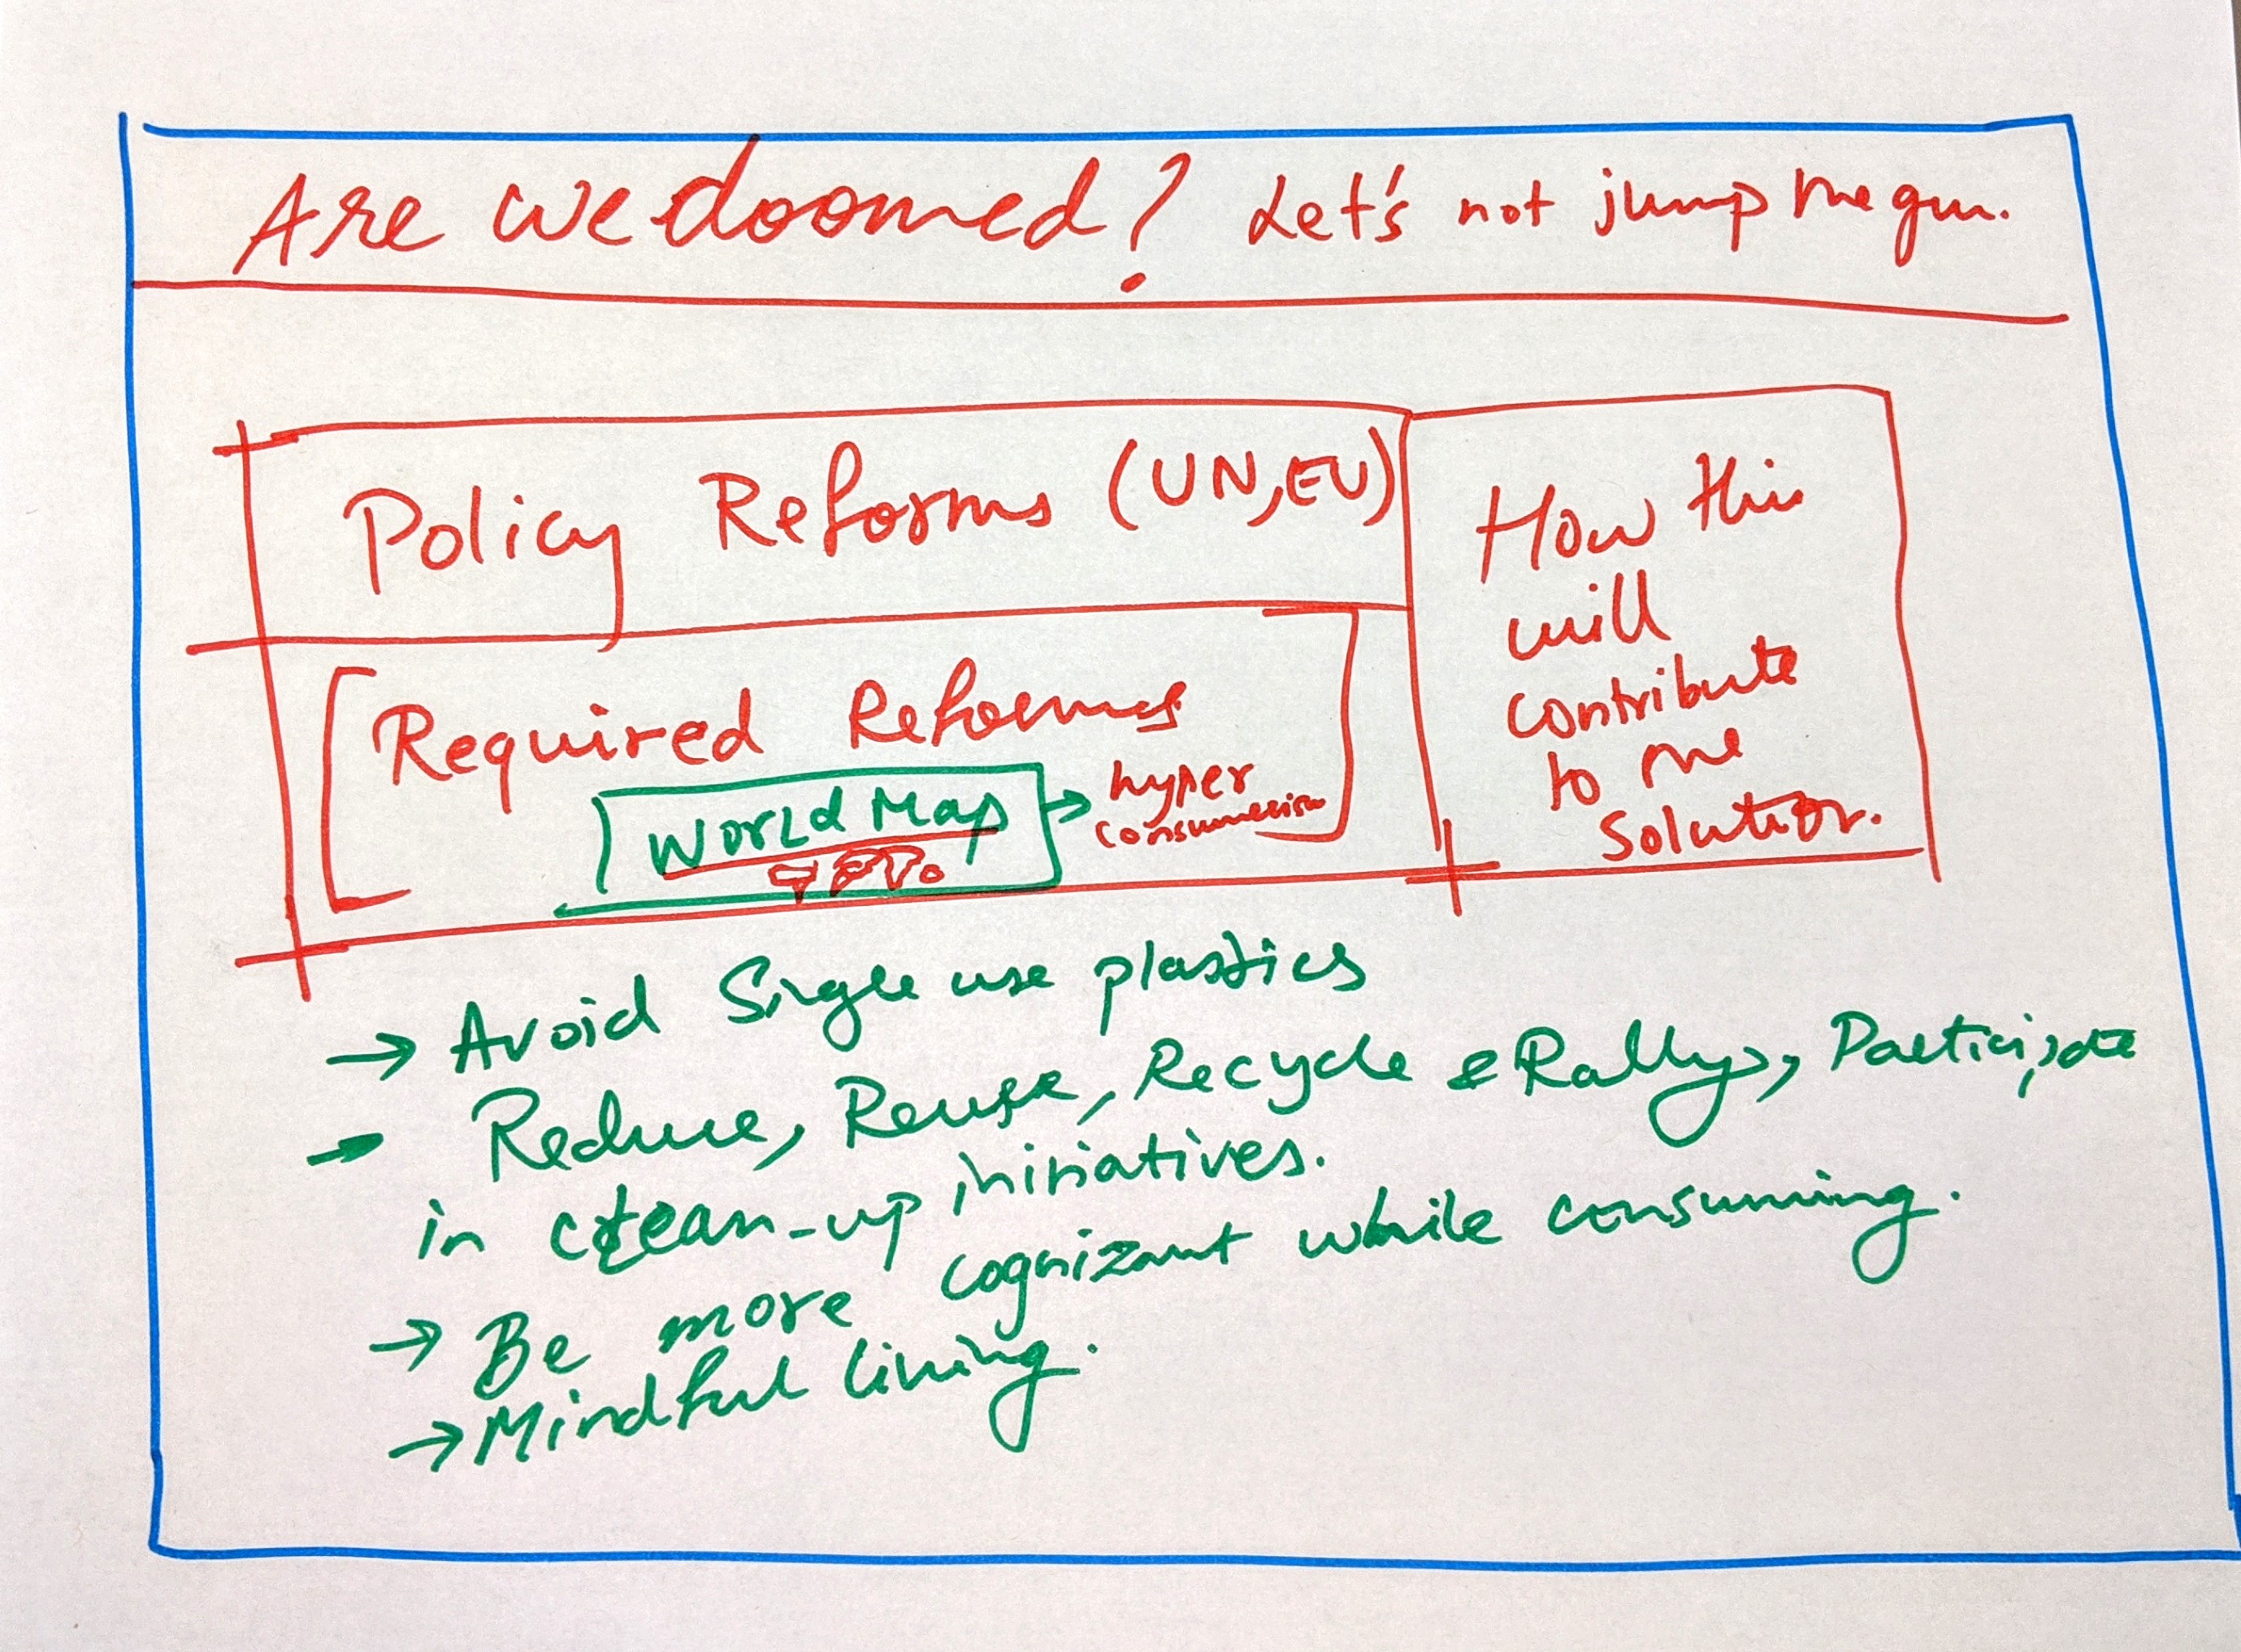 Are we doomed? Let's not jump the gun.
Policy Reforms (UN, EU)
Required Reforms
World Map → hyper
consumerism
How this
will
contribute
to the
solution.
→ Avoid Single use plastics
→ Reduce, Reuse, Recycle & Rally, Participate
in clean-up initiatives.
→ Be more cognizant while consuming.
→ Mindful living.